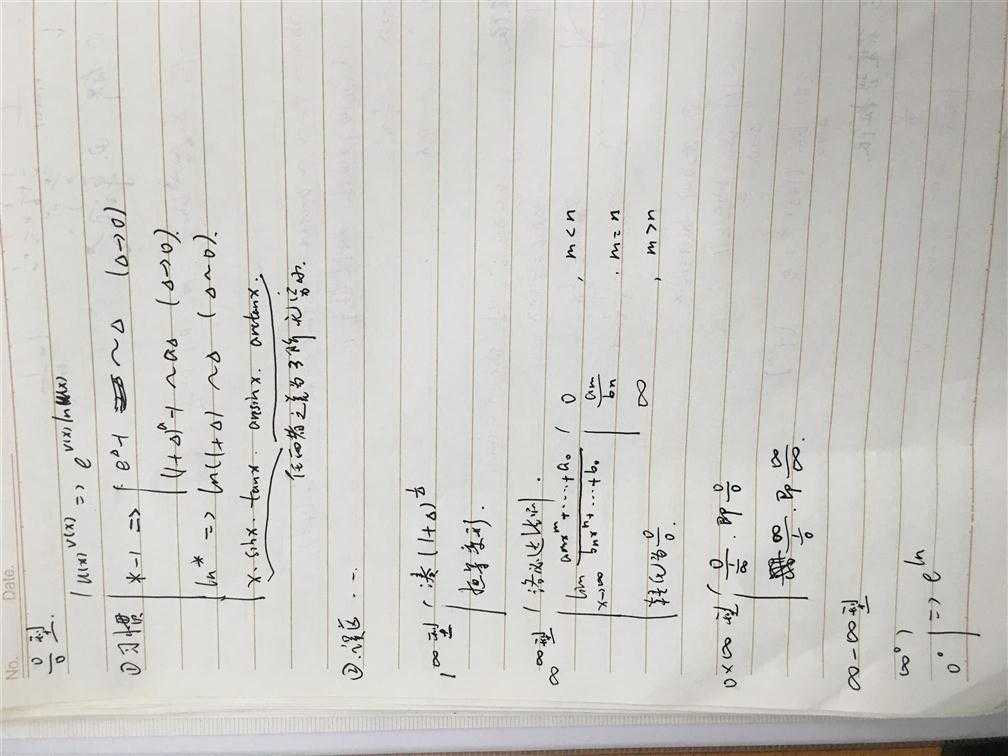 No.
Date.
0/0 型
① 习惯
u(x)^v(x) => e^v(x)lnu(x)
*-1 => e^Δ-1 ~Δ (Δ→0)
(1+Δ)^a-1 ~aΔ (Δ→0).
ln* => ln(1+Δ) ~Δ (Δ~0).
x. sinx. tanx. arcsinx. arctanx.
任两者之差为3阶无穷小.
② 误区
1^∞型 凑(1+Δ)^1/Δ
恒等变形.
∞/∞型 洛必达法则.
lim x→∞ (amx^m+…+a0)/(bnx^n+…+b0)
0 , m<n
am/bn , m=n
∞ , m>n
转化为 0/0.
0×∞型 0/(1/∞). 即 0/0
∞/(1/0). 即 ∞/∞.
∞-∞型
∞^0,
0^0 => e^ln